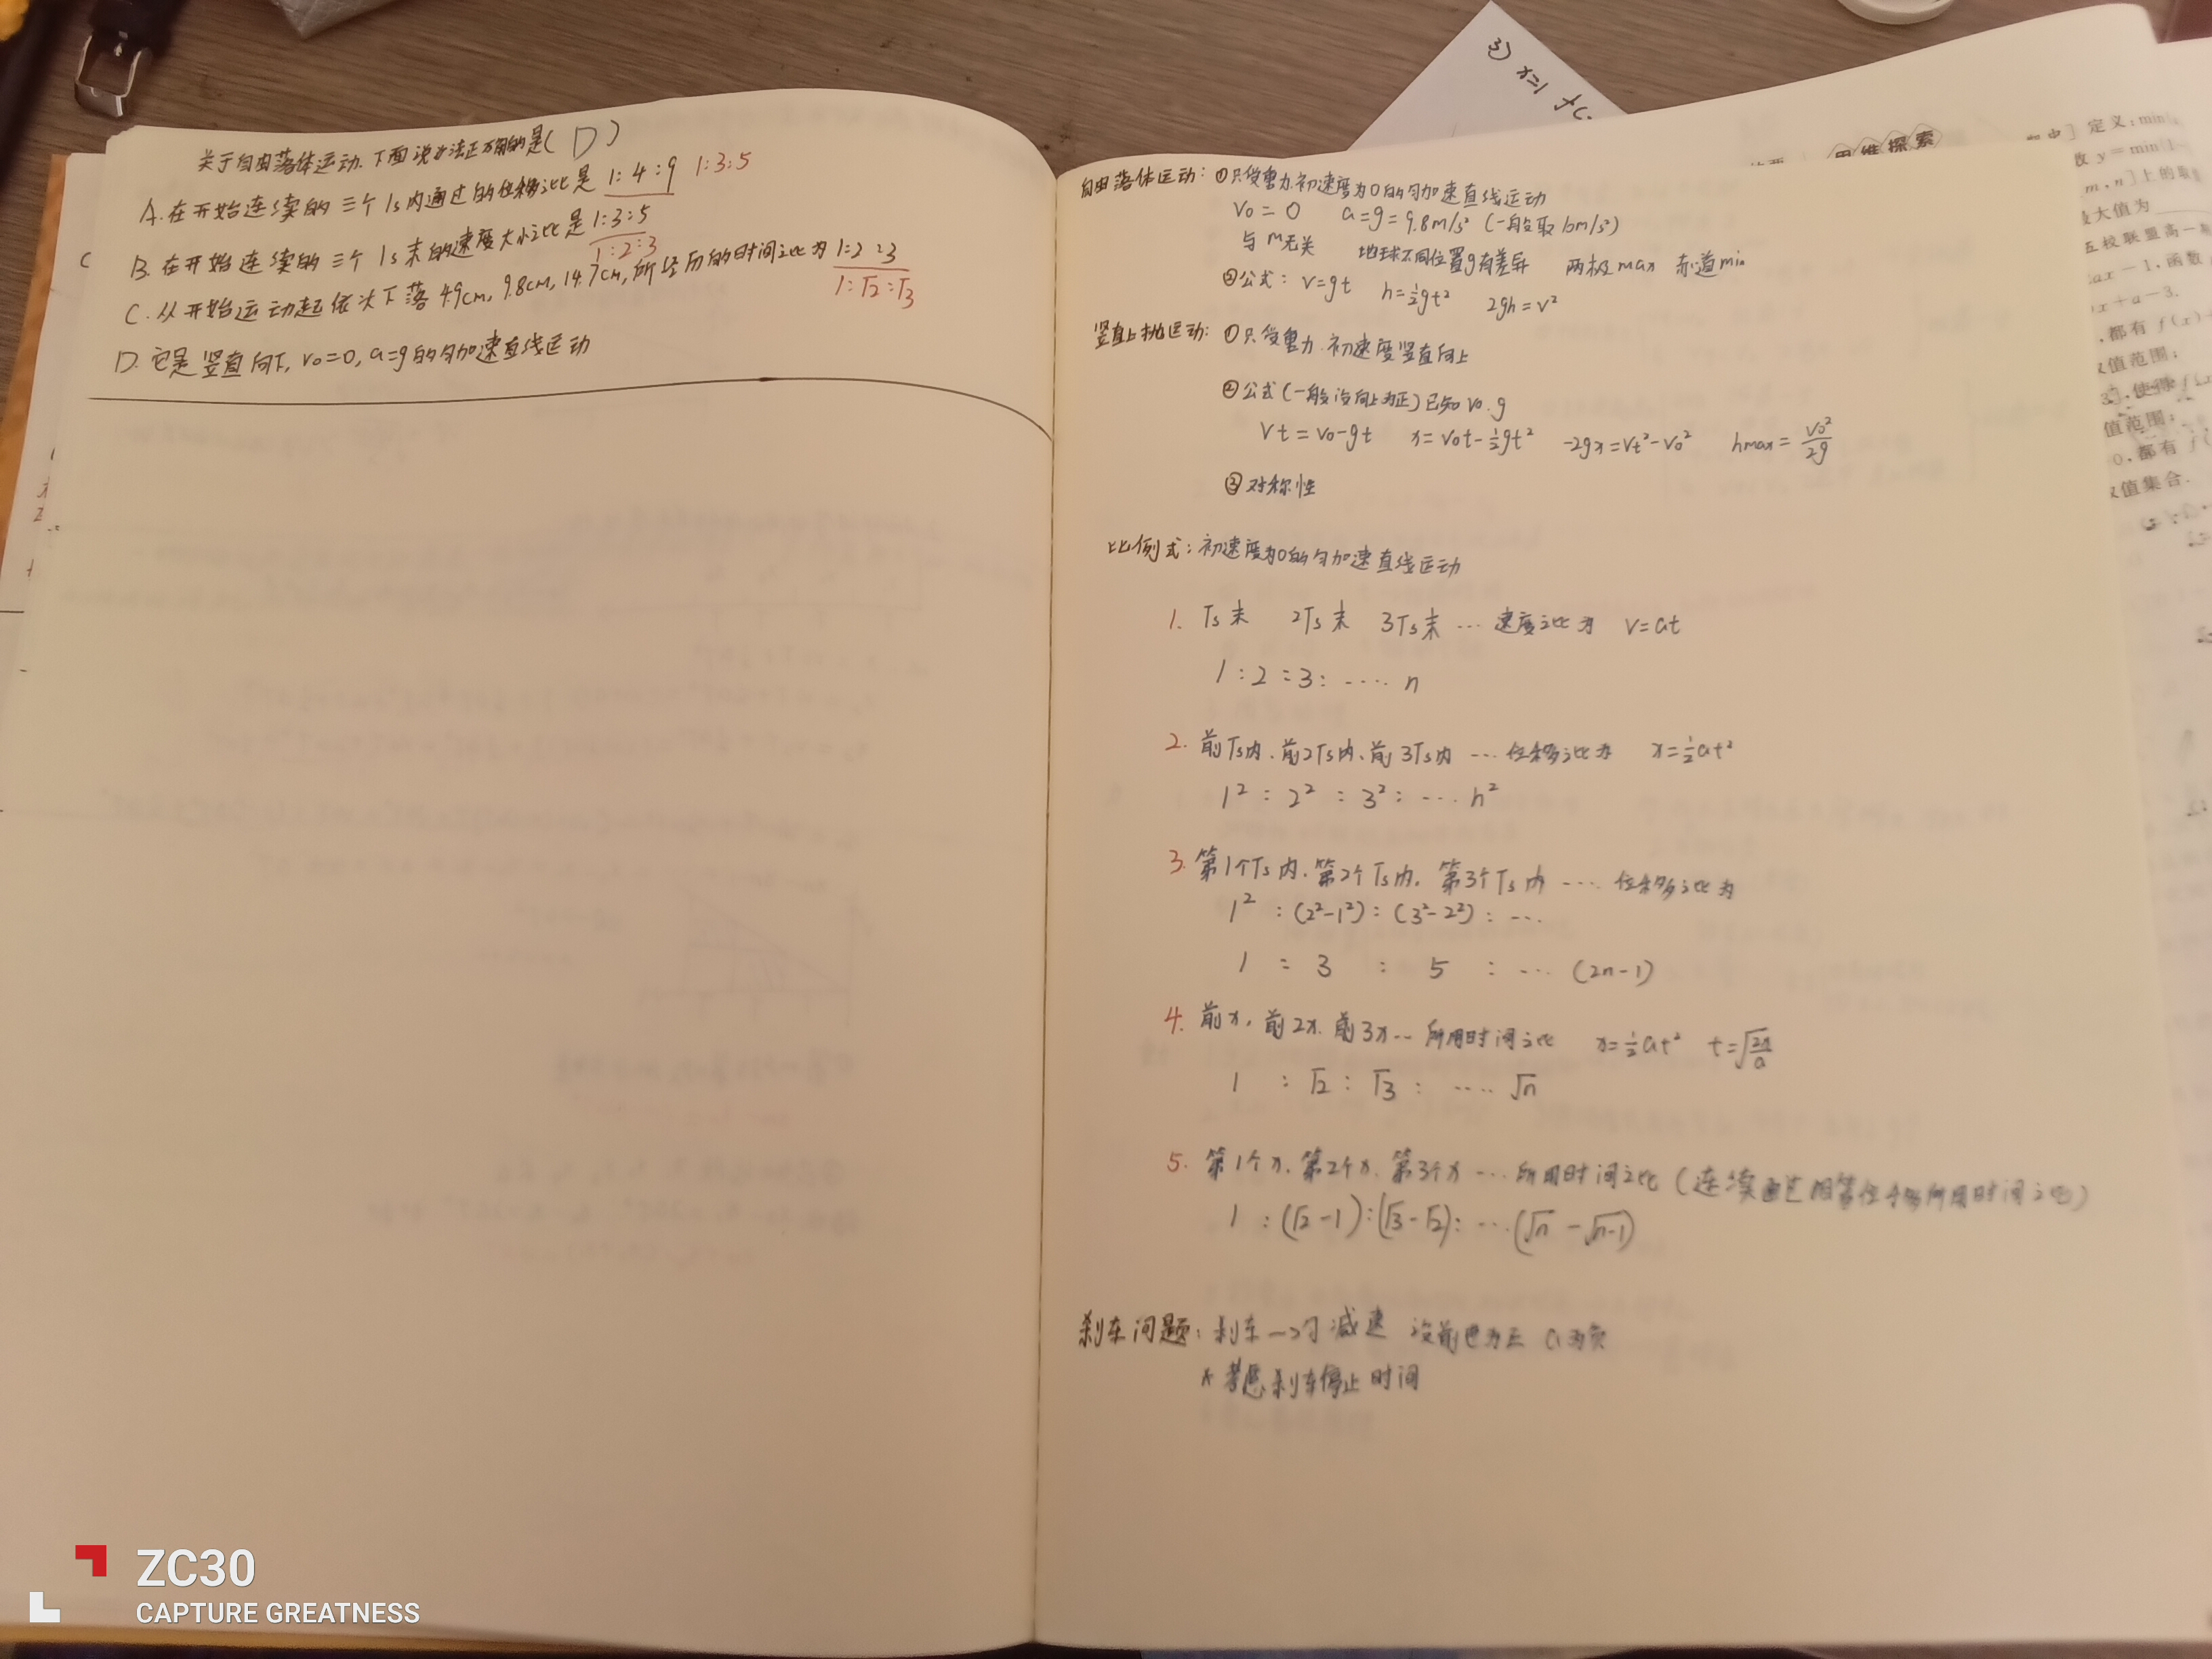 关于自由落体运动.下面说法正确的是( D )
A.在开始连续的三个1s内通过的位移之比是 1:4:9 1:3:5
B.在开始连续的三个1s末的速度大小之比是 1:3:5
1:2:3
C
C.从开始运动起依次下落4.9cm, 9.8cm, 14.7cm,所经历的时间之比为 1:2:3
1:√2:√3
D.它是竖直向下, v₀=0, a=g的匀加速直线运动
自由落体运动: ①只受重力.初速度为0的匀加速直线运动
V₀=0 a=g=9.8m/s² (一般取10m/s²)
与m无关 地球不同位置g有差异 两极max 赤道min
②公式: v=gt h=½gt² 2gh=v²
竖直上抛运动: ①只受重力.初速度竖直向上
②公式(一般设向上为正)已知v₀.g
Vt=v₀-gt x=v₀t-½gt² -2gx=Vt²-V₀² hmax=V₀²/2g
③对称性
比例式:初速度为0的匀加速直线运动
1. Ts末 2Ts末 3Ts末 … 速度之比为 v=at
1:2:3:……n
2. 前Ts内、前2Ts内、前3Ts内 … 位移之比为 x=½at²
1²:2²:3²:…n²
3. 第1个Ts内.第2个Ts内.第3个Ts内 …. 位移之比为
1²:(2²-1²):(3²-2²):…
1:3:5:…(2n-1)
4. 前x,前2x.前3x…所用时间之比 x=½at² t=√(2x/a)
1:√2:√3:……√n
5. 第1个x.第2个x.第3个x…所用时间之比(连续通过相等位移所用时间之比)
1:(√2-1):(√3-√2):…(√n-√(n-1))
刹车问题:刹车→匀减速 设前进为正 a为负
考虑刹车停止时间
3) x=1 f(
思维探索
定义:min
数 y=min{1-
[m,n]上的取
最大值为
五校联盟高一
ax-1,函数
x+a-3.
,都有 f(x)
取值范围;
使得
值范围;
0,都有 f(
取值集合.
ZC30
CAPTURE GREATNESS